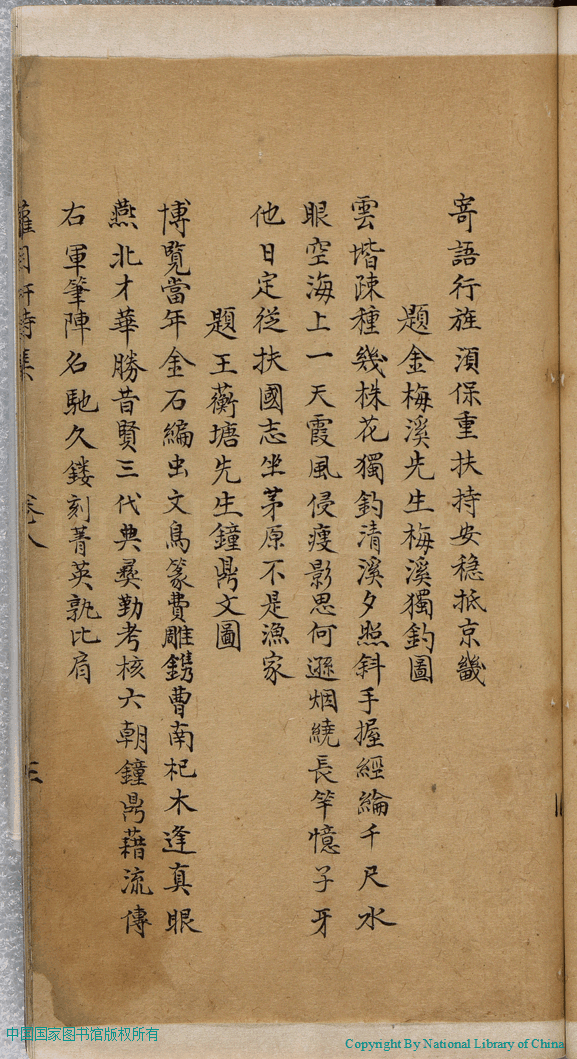 寄語行旌須保重扶持安穩抵京畿
題金梅溪先生梅溪獨釣圖
雲堦疎種幾株花獨釣清溪夕照斜手握經綸千尺水
眼空海上一天霞風侵瘦影思何遜烟繞長竿憶子牙
他日定從扶國志坐茅原不是漁家
題王蘅塘先生鐘鼎文圖
博覽當年金石編虫文鳥篆費雕鐫曹南杞木逢真眼
燕北才華勝昔賢三代典彝勤考核六朝鐘鼎藉流傳
右軍筆陣名馳久鏤刻菁英孰比肩
詩集
卷八
中国国家图书馆版权所有
Copyright By National Library of China